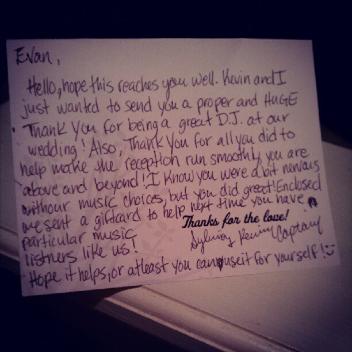 Evan,
Hello, hope this reaches you well. Kevin and I
just wanted to send you a proper and HUGE
Thank You for being a great D.J. at our
wedding! Also, Thank You for all you did to
help make the reception run smooth, you are
above and beyond! I know you were a bit nervous
withour music choices, but you did great! Enclosed
we sent a giftcard to help next time you have
particular music
Thanks for the love!
listners like us!
Hope it helps, or atleast you can use it for yourself!